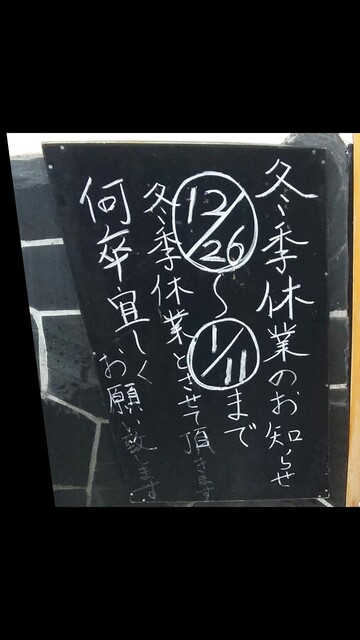 冬季休業のお知らせ
12/26〜1/11まで
冬季休業とさせて頂きます
何卒宜しく
お願い致します